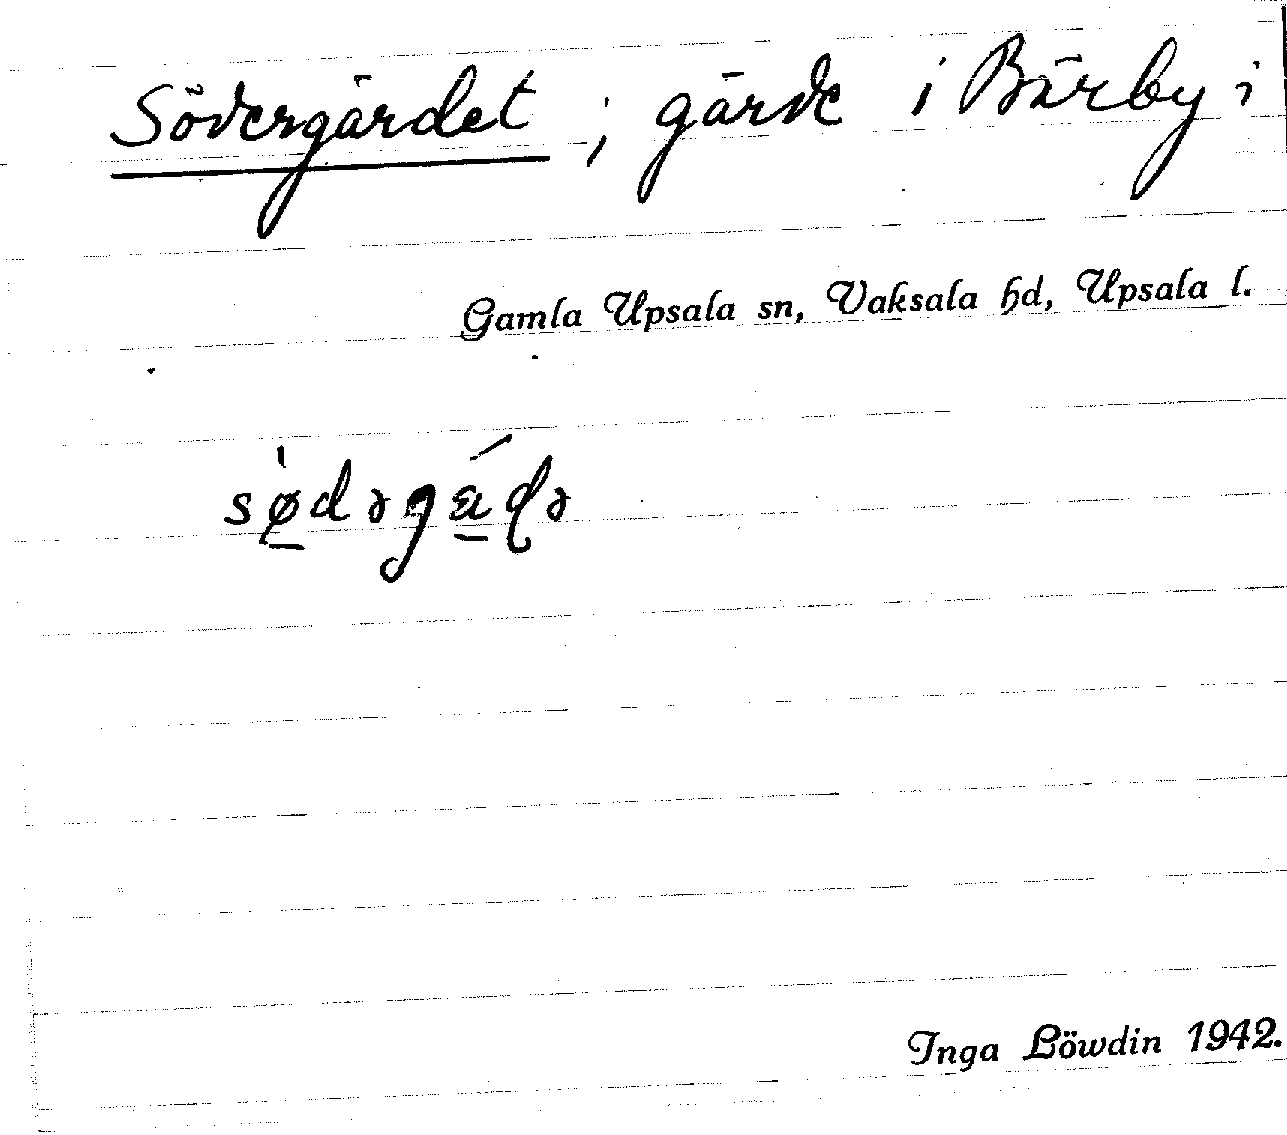 Södergärdet ; gärde i Bärby i
Gamla Upsala sn, Vaksala hd, Upsala l.
sø̲̀dəgǽ̲ɖə
Inga Löwdin 1942.